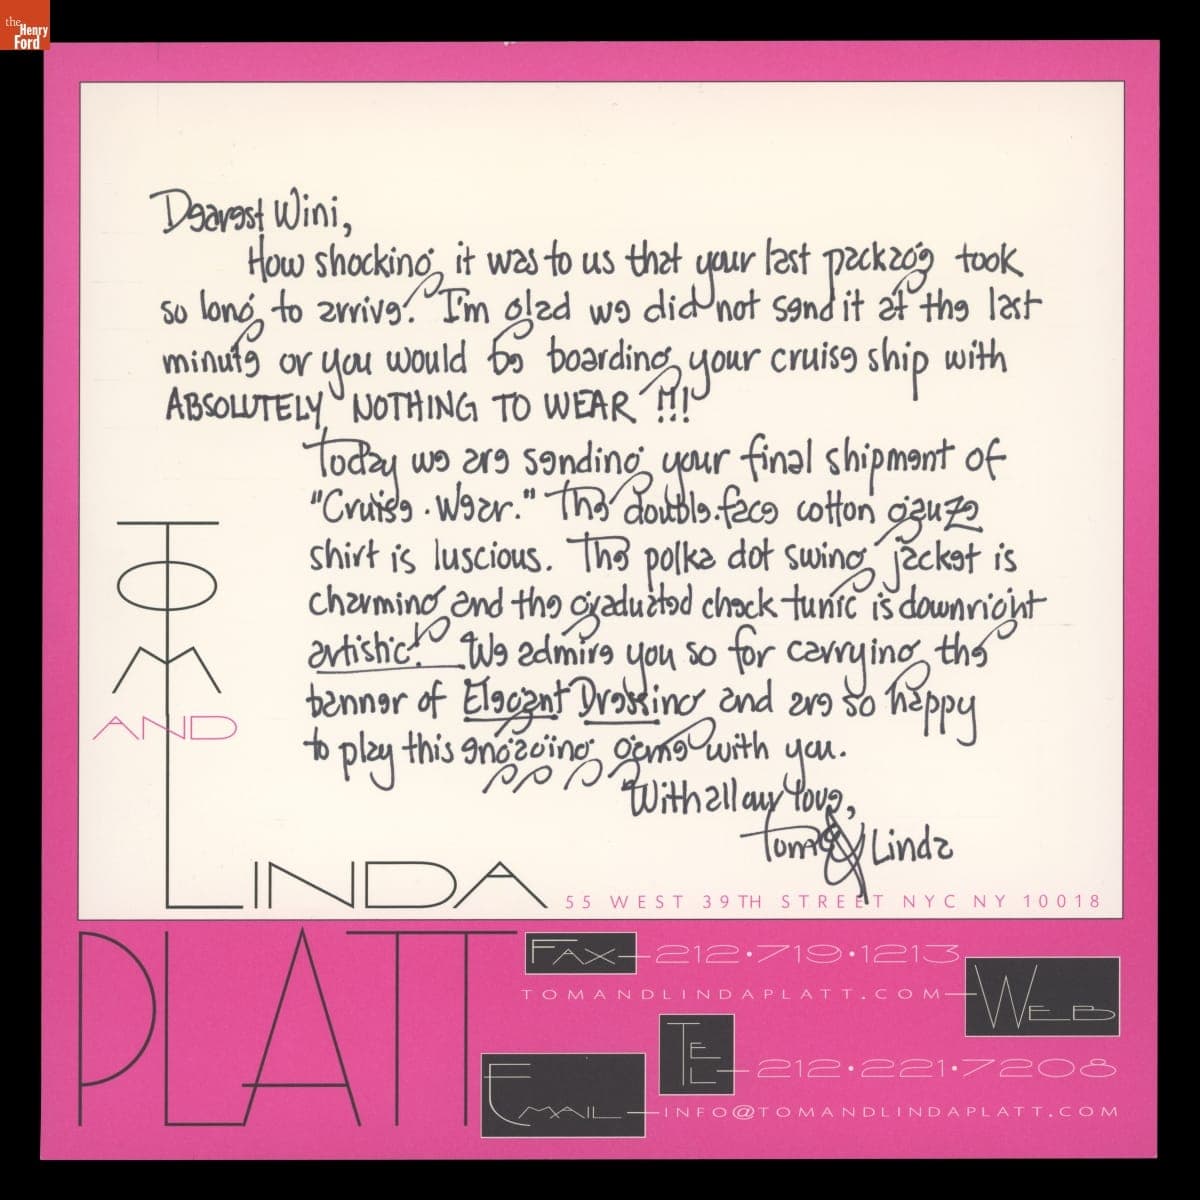 the
Henry
Ford
Dearest Wini,
How shocking it was to us that your last package took
so long to arrive! I'm glad we did not send it at the last
minute or you would be boarding your cruise ship with
ABSOLUTELY NOTHING TO WEAR!!!
Today we are sending your final shipment of
"Cruise-Wear." The double-face cotton gauze
shirt is luscious. The polka dot swing jacket is
charming and the graduated check tunic is downright
artistic! We admire you so for carrying the
banner of Elegant Dressing and are so happy
to play this engaging game with you.
With all our love,
Tom & Linda
TOM
AND
LINDA
55 WEST 39TH STREET NYC NY 10018
PLATT
FAX 212·719·1213
TOMANDLINDAPLATT.COM WEB
TEL 212·221·7208
EMAIL INFO@TOMANDLINDAPLATT.COM